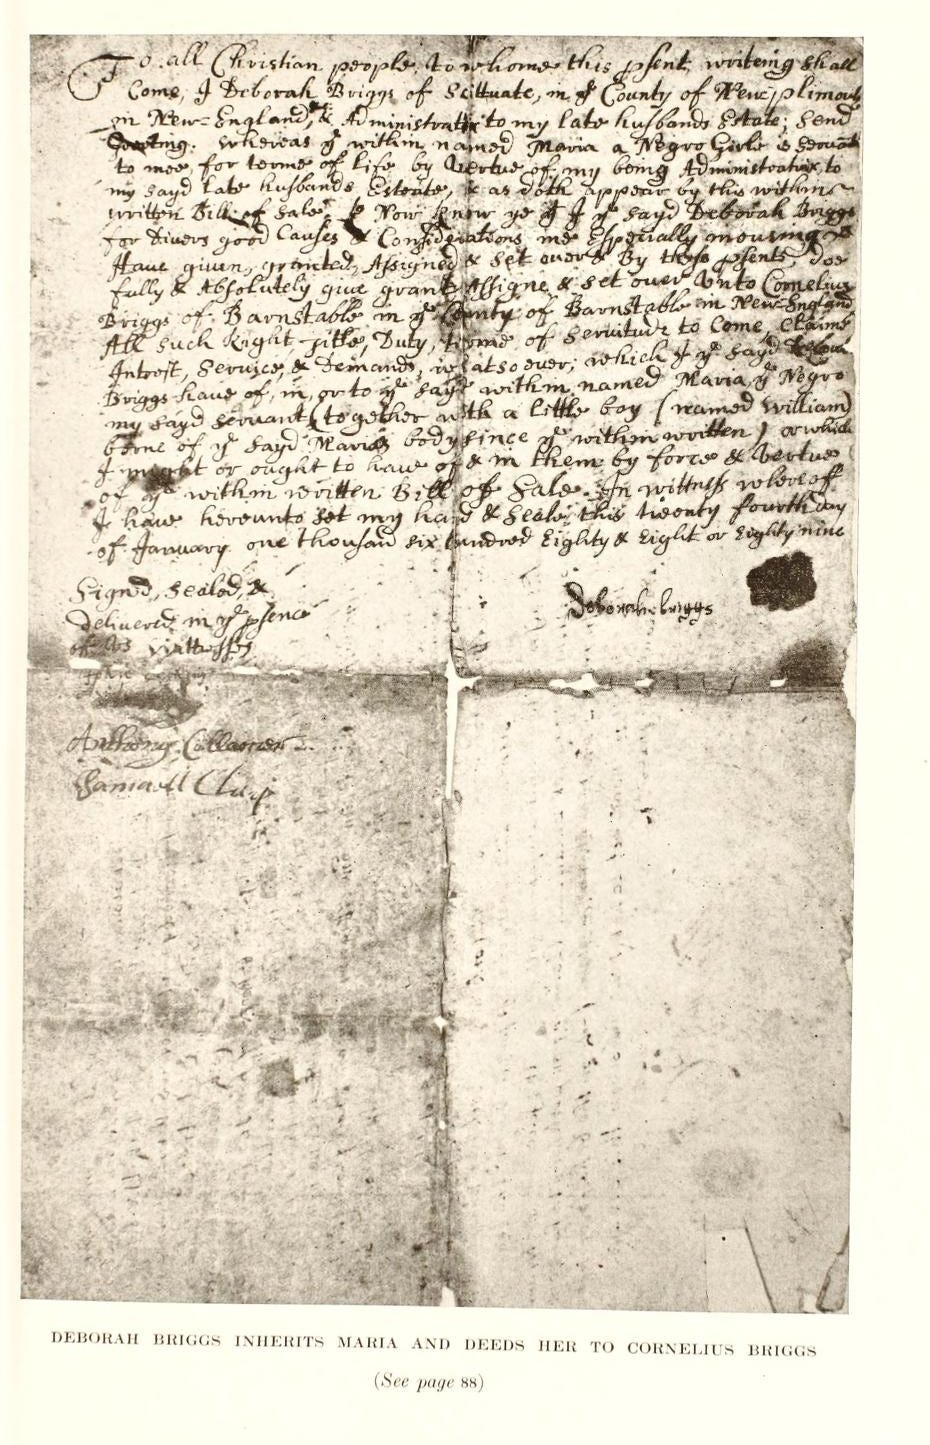 To all Christian people, to whome this psent writeing shall
Come, I Deborah Briggs of Scittuate, in ye County of New-plimouth
in New-England, & Administratrix to my late husbands Estate; send
Greeting. whereas ye within named Maria a Negro Girle is servant
to mee, for terme of life by Vertue of my being Administratrix to
my sayd late husbands Esteate, & as doth appear by this within
written Bill of Sale. Now know ye yt I ye sayd Deborah Briggs
for divers good Causes & Considerations me Especially moveing
Have given, granted, Assigned & set over & By these psents, doe
fully & Absolutely give grant Assigne & set over Unto Cornelius
Briggs of Barnstable in ye County of Barnstable in New-England
All such Right, title, Duty, terme of servitude to Come, Claime
Intrest, Service, & Demands, whatsoever; which I ye sayd
Briggs have of, in, or to ye sayd within named Maria ye Negro
my sayd servant, (together with a little boy (named William)
borne of ye sayd Marias body since ye within written) or which
I might or ought to have of & in them by force & vertue
of ye within written Bill of Sale. In wittness whereoff
I have hereunto set my hand & seale, this twenty fourth day
of January one thousan six hundred Eighty & Eight or Eighty nine
Signed, sealed, &
delivered in ye psence
of Us wittnesses
deborah briggs
Anthony Collamer
Samuell Clap
DEBORAH BRIGGS INHERITS MARIA AND DEEDS HER TO CORNELIUS BRIGGS
(See page 88)